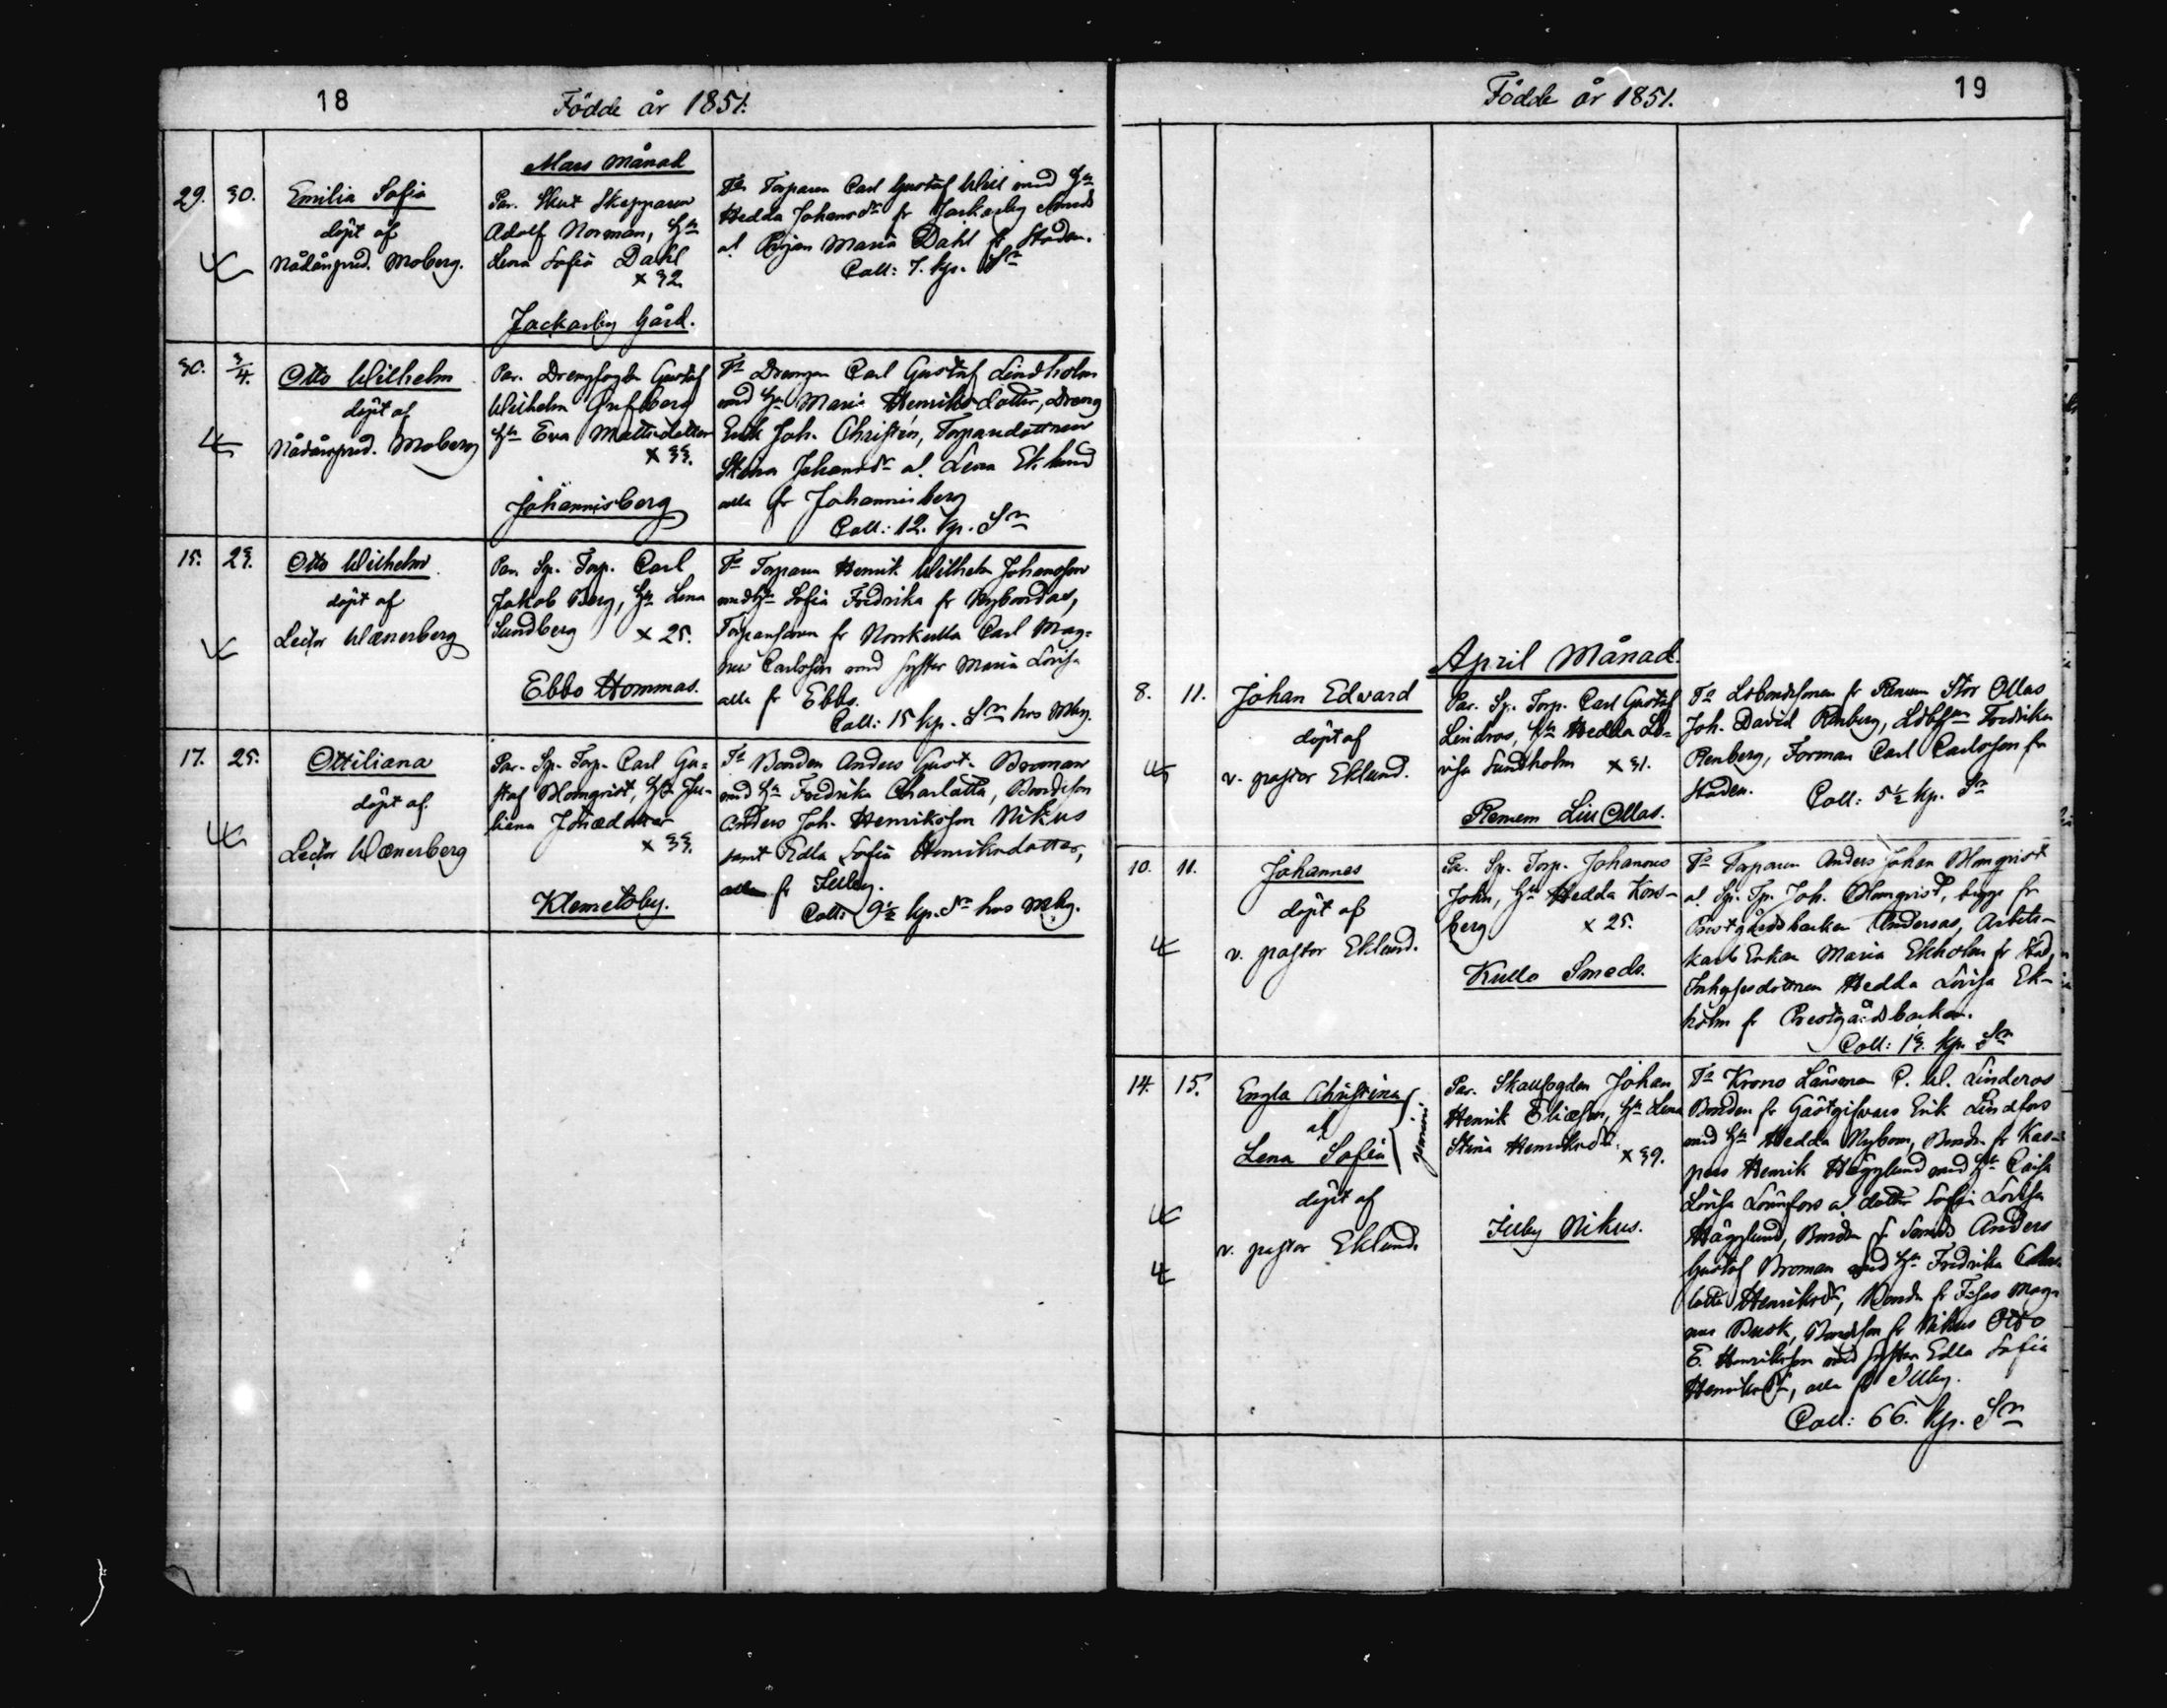 18
Födde år 1851.
Mars Månad
29. 30. Emilia Sofia
döpt af
Nådårspred. Moberg.
Par. Skut Skepparen
Adolf Norman, H:u
Lena Sofia Dahl
x 32.
Jackarby Gård.
F:a Torparen Carl Gustaf med H:u
Hedda Johansdr fr Jackarby
al. Pigan Maria Dahl fr Staden.
Coll: 7. kp. Sr
30. 3/4. Otto Wilhelm
döpt af
Nådårspred. Moberg
Par. Drengfogden Gustaf
Wilhelm
H:u Eva Mattsdotter
x 33.
Johannisberg
F:a Drengen Carl Gustaf Lindholm
med H:u Maria Henriksdotter, Dreng
Erik Joh. Christén, Torparedottren
Stina Johansdr al. Lena Eklund
alla fr Johannisberg
Coll: 12. kp. Sr
15. 23. Otto Wilhelm
döpt af
Lector Wænerberg
Par. Sp. Torp. Carl
Jakob Berg, H:u Lena
Sundberg x 25.
Ebbo Hommas.
F:a Torparen Henrik Wilhelm Johansson
med H:u Sofia Fredrika fr Nybondas,
Torparesonen fr Norrkulla Carl Mag=
nus Carlsson med syster Maria Lovisa
alla fr Ebbo.
Coll: 15 kp. Sr hos Mbg.
17. 25. Ottiliana
döpt af
Lector Wænerberg
Par. Sp. Torp. Carl Gu=
staf Blomqvist, H:u Ju=
liana
x 33.
Klemetsby.
F:a Bonden Anders Gust. Broman
med H:u Fredrika Charlotta, Bondeson
Anders Joh. Henriksson Nikus
samt Edla Sofia Henriksdotter,
alla fr Illby.
Coll: 9½ kp. Sr hos Mbg.
Födde år 1851.
19
April Månad.
8. 11. Johan Edward
döpt af
v. pastor Eklund.
Par. Sp. Torp. Carl Gustaf
Lindros, H:u Hedda Lo=
visa Sundholm x 31.
Renum LillOllas.
F:a Ldbondesonen fr Renum Stor Ollas
Joh. David Renberg, Fredrika
Renberg, Forman Carl Carlsson fr
Staden.
Coll: 5½ kp. Sr
10. 11. Johannes
döpt af
v. pastor Eklund.
Par. Sp. Torp. Johannes
John, H:u Hedda Fors-
berg x 25.
Kullo Smeds.
F:a Torparen Anders Johan Blomqvist
al. Sp. Tp. Joh. Blomqvist, begge fr
Prestgårdsbacken Andersas, Arbets-
karls Enkan Maria Ekholm fr Stad,
Inhysesdottren Hedda Lovisa Ek-
holm fr Prestgårdsbacken.
Coll: 13. kp. Sr
14. 15. Engla Christina
al
Lena Sofia
döpt af
v. pastor Eklund.
Par. Skallfogden Johan
Henrik Eliæson, H:u Lena
Stina Henriksdr.
x 39.
Illby Nikus.
F:a Krono Länsman C. W. Linderos
Bonden fr Gästgifvars Erik Lindfors
med H:u Hedda Nybom, Bondn fr Kas=
pers Henrik Hägglund med H:u Caisa
Lovisa Lönnfors al dotter Sofia Lovisa
Hägglund, Bonden fr Smeds Anders
Gustaf Broman med H:u Fredrika Char
lotta Henriksdr, Bondn fr Mag=
nus Busk, Bondeson fr Nikus Otto
E. Henriksson med syster Edla Sofia
Henriksdr, alla fr Illby.
Coll: 66. kp. Sr